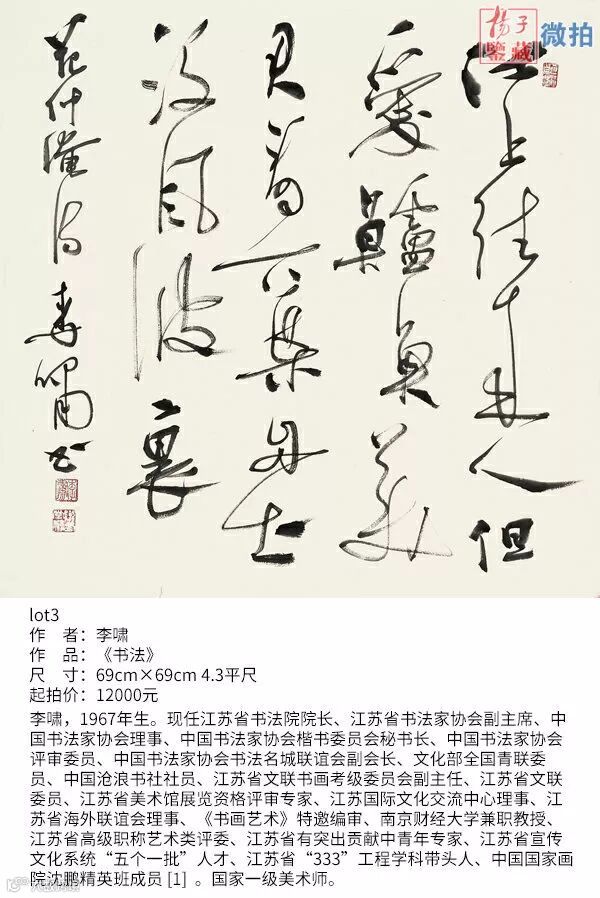 揚子
鑒藏
微拍
江上往來人但
愛鱸魚美
君看一葉舟出
没風波裏
范仲淹诗 李嘯书
lot3
作　者：李啸
作　品：《书法》
尺　寸：69cm×69cm 4.3平尺
起拍价：12000元
李啸，1967年生。现任江苏省书法院院长、江苏省书法家协会副主席、中
国书法家协会理事、中国书法家协会楷书委员会秘书长、中国书法家协会
评审委员、中国书法家协会书法名城联谊会副会长、文化部全国青联委
员、中国沧浪书社社员、江苏省文联书画考级委员会副主任、江苏省文联
委员、江苏省美术馆展览资格评审专家、江苏国际文化交流中心理事、江
苏省海外联谊会理事、《书画艺术》特邀编审、南京财经大学兼职教授、
江苏省高级职称艺术类评委、江苏省有突出贡献中青年专家、江苏省宣传
文化系统“五个一批”人才、江苏省“333”工程学科带头人、中国国家画
院沈鹏精英班成员 [1] 。国家一级美术师。